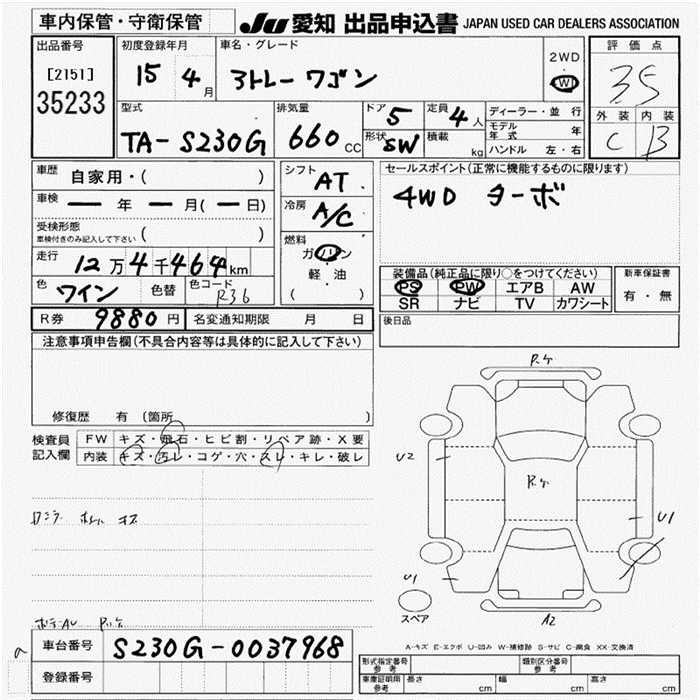 車内保管・守衛保管
JU 愛知 出品申込書 JAPAN USED CAR DEALERS ASSOCIATION
出品番号
[2151]
35233
初度登録年月
15 4月
車名・グレード
ストレーワゴン
2WD
4WD
評価点
3.5
外装 内装
C B
型式
TA-S230G
排気量
660 CC
ドア 5
形状 SW
定員 4人
積載 kg
ディーラー・並行
モデル年式 年
ハンドル 左・右
車歴 自家用・( )
車検 ー年ー月(ー日)
受検形態
車検付きのみ記入して下さい ( )
走行 12万4千464km
色 ワイン 色替 色コード R36
シフト AT
冷房 A/C
燃料
ガソリン
軽・油
( )
セールスポイント(正常に機能するものに限ります)
4WD ターボ
装備品(純正品に限り○をつけてください)
PS PW エアB AW
SR ナビ TV カワシート
新車保証書
有・無
R券 9880円 名変通知期限 月 日
後日品
注意事項申告欄(不具合内容等は具体的に記入して下さい)
修復歴 有(箇所 )
検査員記入欄
FW キズ・飛石・ヒビ割・リペア跡・X要
内装 キズ・汚レ・コゲ・穴・スレ・キレ・破レ
車台番号 S230G-0037968
登録番号
U2
U1
U1
A2
スペア
A-キズ E-エクボ U-凹み W-補修跡 S-サビ C-腐食 XX-交換済
形式指定番号 参考
類別区分番号 参考
車庫証明用 参考 長さ cm 幅 cm 高さ cm